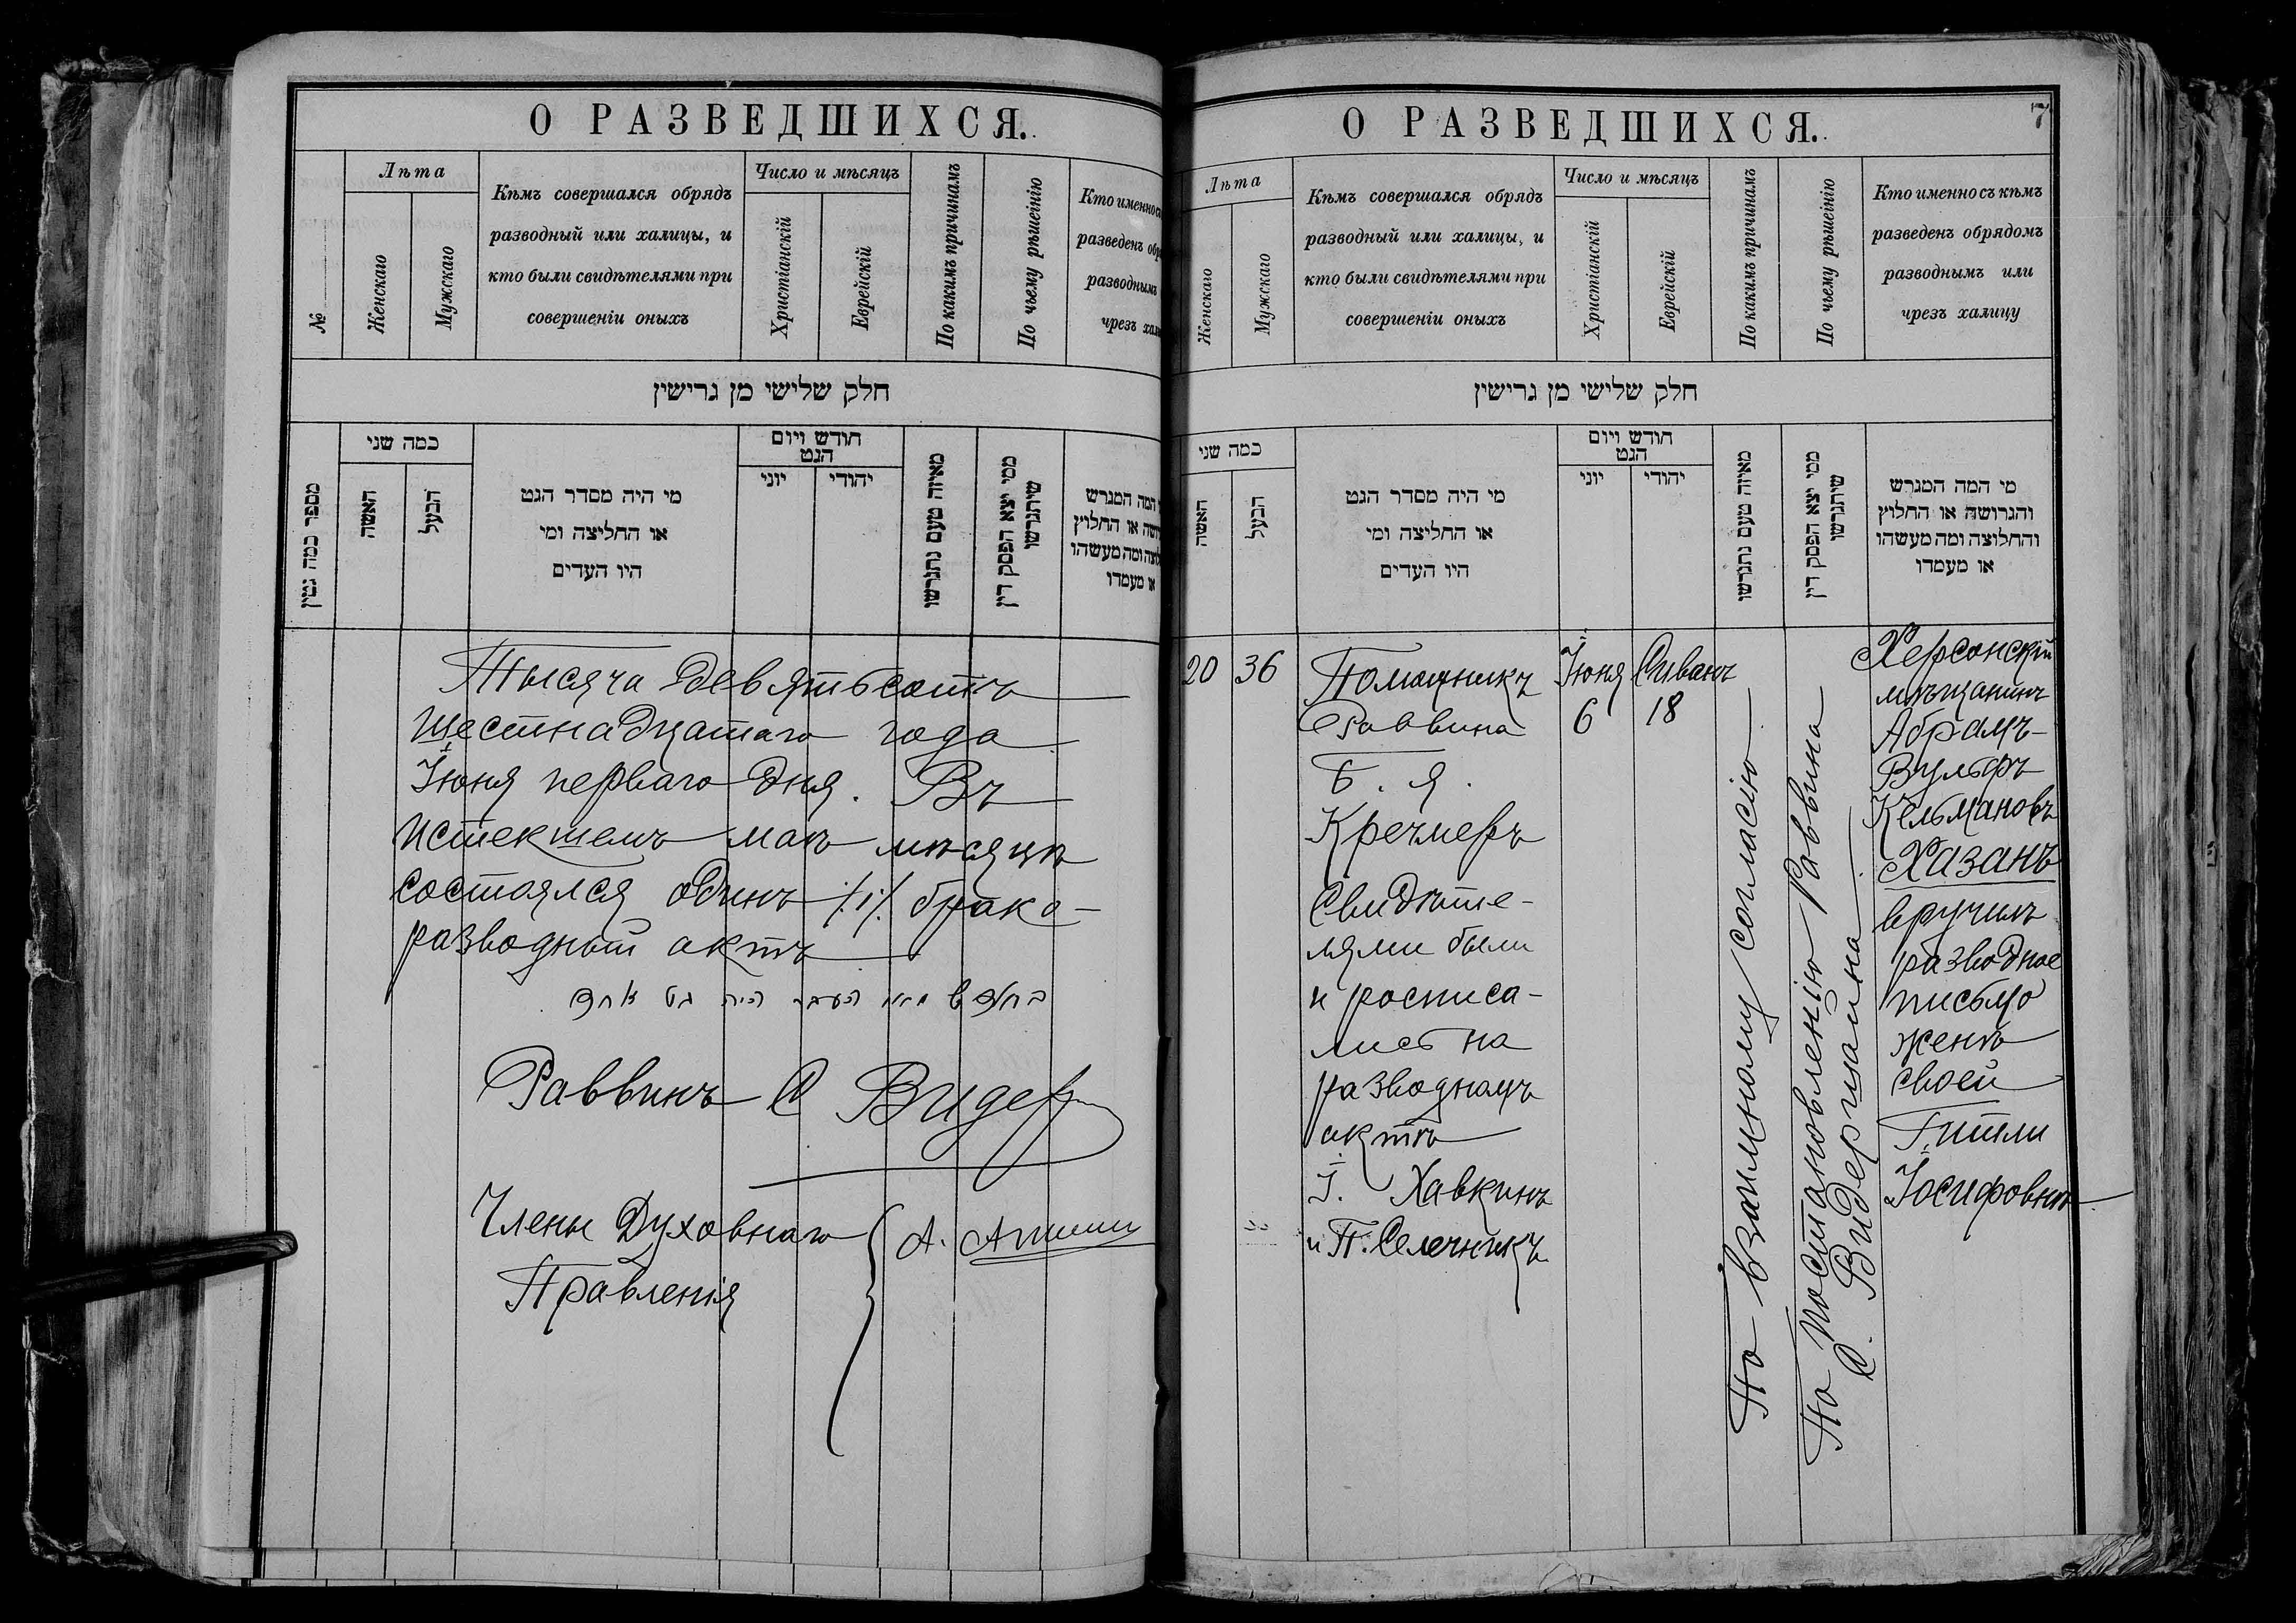 О РАЗВЕДШИХСЯ.
№
Лѣта
Женскаго
Мужскаго
Кѣмъ совершался обрядъ
разводный или халицы, и
кто были свидѣтелями при
совершеніи оныхъ
Число и мѣсяцъ
Христіанскій
Еврейскій
По какимъ причинамъ
По чьему рѣшеінію
Кто именно съ
разведенъ обр
разводнымъ
чрезъ хали
חלק שלישי מן גרישין
מספר כמה גטין
כמה שני
האשה
הבעל
מי היה מסדר הגט
או החליצה ומי
היו העדים
חודש ויום
הגט
יוני
יהודי
מאיזה טעם נתגרשו
ממי יצא הפסק דין
שיתגרשו
המה המגרש
או החלוץ
ומה מעשהו
או מעמדו
Тысяча девятьсотъ
шестнадцатаго года
Іюня перваго дня. Въ
истекшемъ маѣ мѣсяцѣ
состоялся одинъ /1/ брако-
разводный актъ
בחדש מאי העבר היה גט אחד
Раввинъ С Видер
Члены Духовнаго
Правленія
А.
О РАЗВЕДШИХСЯ.
7
Лѣта
Женскаго
Мужскаго
Кѣмъ совершался обрядъ
разводный или халицы, и
кто были свидѣтелями при
совершеніи оныхъ
Число и мѣсяцъ
Христіанскій
Еврейскій
По какимъ причинамъ
По чьему рѣшеінію
Кто именно съ кѣмъ
разведенъ обрядомъ
разводнымъ или
чрезъ халицу
חלק שלישי מן גרישין
כמה שני
האשה
הבעל
מי היה מסדר הגט
או החליצה ומי
היו העדים
חודש ויום
הגט
יוני
יהודי
מאיזה טעם נתגרשו
ממי יצא הפסק דין
שיתגרשו
מי המה המגרש
והגרושה או החלוץ
והחלוצה ומה מעשהו
או מעמדו
20
36
Помощникъ
Раввина
Б. Я.
Кречмеръ
Свидѣте-
лями были
и росписа-
лись на
разводномъ
актѣ
І. Хавкинъ
и П. Селечникъ
Іюня
6
Сиванъ
18
По взаимному согласію
По постановленію Раввина
С. Видершайна
Херсонскій
мѣщанинъ
Абрамъ-
Вульфъ
Кельмановъ
Хазанъ
вручилъ
разводное
письмо
женѣ
своей
Гитли
Іосифовнѣ